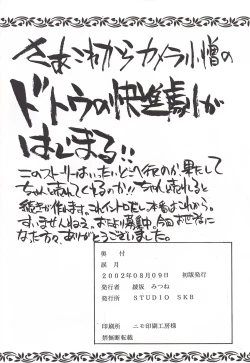 さあこれからカメラ小僧の
ドトウの快進劇が
はじまる!!
このストーリーはいったいどこへ行くのか、果たして
ちゃんとおわってくれるのか!! ちゃんと売れると
続きが作れます。これイントロだし、本番はこれから。
すいませんねえ。おたより募集中。今回お世話に
なった方々、ありがとうございました。
奥付
誤月
2002年08月09日 初版発行
発行者 綾坂 みつね
発行所 STUDIO SKB
印刷所 ニモ印刷工房様
禁無断転載